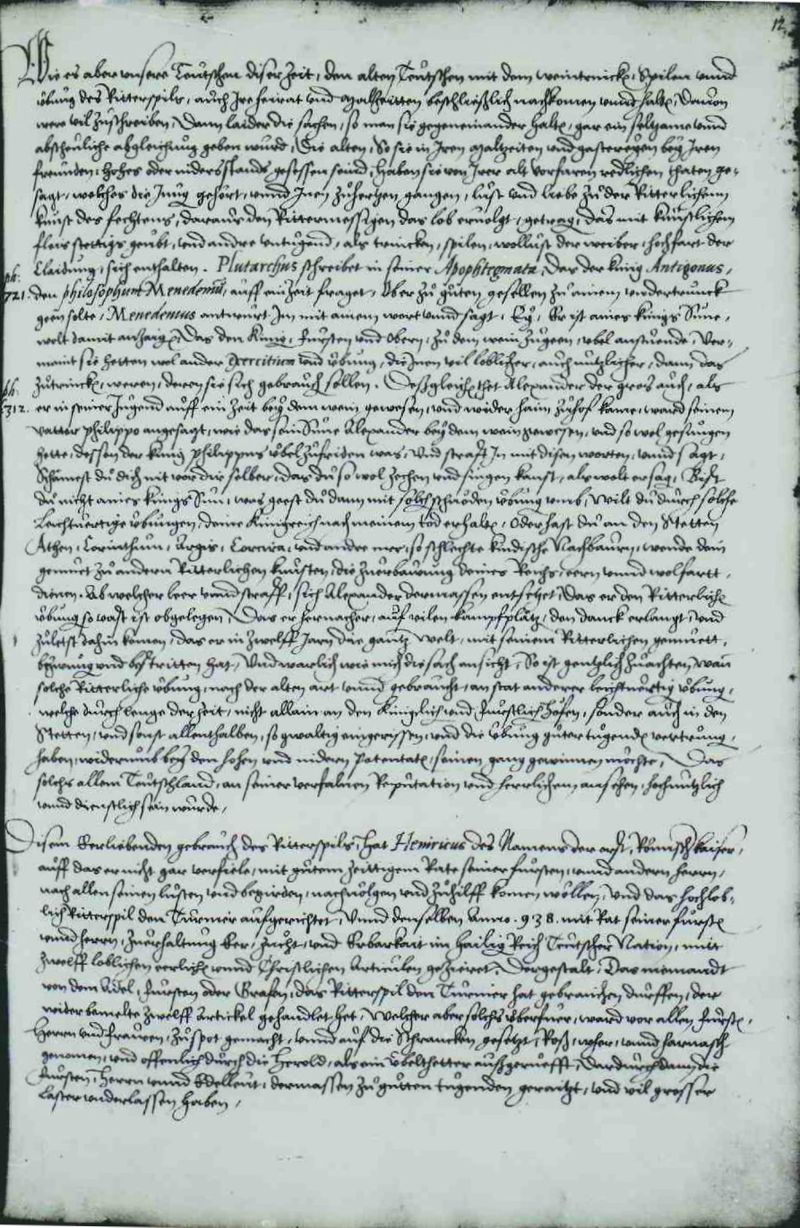 12.
Wie es aber unsere Teütschen diser Zeit, den alten Teütschen mit dem weintrincken, Spilen unnd
übung des Ritterspils, auch Irer heirat und malzeitten beschließlich nachkomen unnd halten, Davon
were vil zuschreiben, Dann laider die sachen, so man sie gegeneinander halten, gar ein seltzame unnd
abscheuliche abgleichung geben wurd, Die alten, So sie in Iren malzeiten und gastereyen bey Iren
freunden, hohes oder niders stands gesessen seind, haben sie von Irer alt vorfaren redlichen thaten ge-
sagt, welches die Jung gehört, unnd Inen zuhertzen gangen, lust und liebe zu der Ritterlichenn
kunst des fechtens, daraus den Rittermessigen das lob ervolgt, getrag, das mit künstlichem
fleis stettigs geubt, und andre untugend, als trincken, spilen, wollust der weiber, hochfart der
Claidung, sich enthalten. Plutarchus schreibet in seiner Apophtegmata, Das der künig Antigonus,
ph:
721. den philosophum Menedemum, auff ein Zeit fraget, Ober zu guten gesellen zu ainem undertrunck
geen solte, Menedemus antwurt Im mit ainem wort unnd sagt, Ey, Er ist aines künigs Sune,
wolt damit anzaigen, Das den Künig, fursten und Obern, zu dem wein zugeen, ubel anstuende, Ver-
maint sie hetten wol ander Exercitien und übung, die Inen vil loblicher, auch nutzlicher, dann das
ph:
312. zutrincken, weren, deren sie sich gebrauch sollen. Deßgleichen thet Alexander der gros auch, als
er in seiner Jugend auff ein zeit bey dem wein gewesen, und wider haim zuhof kame, ward seinem
vatter Philippo angesagt, wie das sein Sune Alexander bey dem wain gewesen, und so wol gesungen
hette, dessen der künig Philippus übel zufriden was, Und strafft In mit disen worten, unnd sagt,
Schämest du dich nit vor dir selber, das du so wol zechen und singen kanst, als wolt er sag, Bist
du nicht aines künigs Sun, was geest du dann mit solch schnöden übung umb, Wilt du durch solche
Leichtvertige übungen, deine Künigreich nach meinem tod erhalten, Oder hast du an den Stetten
Athen, Corinthum, Argis, Corcira, und andre mer, so schlechte kindische Nachbaurn, wende dein
gemuet zu andern Ritterlichen künsten, die zuerbawung deines Reichs, eern unnd wolfartt,
dienen. Ab welcher leer unnd straff, sich Alexander dermassen entsetzet, Das er den Ritterlichen
übung so vast ist obgelegen, Das er hernacher, auf vilen kampfplätz, den danck erlangt, und
zuletst dahin komen, das er in zwelff Jarn die gantz welt, mit seinem Ritterlichen gemuett,
bezwung und bestritten hat, Und warlich wie mich die sach ansicht, So ist gentzlich zuachten, wan
solche Ritterliche übung, nach der alten art unnd gebraucht, an stat anderer leichtvertig übung,
welche durch lenge der zeit, nicht allain an den Künigklich und Furstlich höfen, sonder auch in den
Stetten, und sonst allenthalben, so gwaltig eingerissen, und die übung guter tugenden vertrung,
haben, widerumb bey den hohen und nidern Potentaten, seinen gang gewinnen möchte, Das
solchs allem Teutschland, an seiner vorfahren Reputation und herrlichem ansehen, hochnutzlich
unnd dienstlich sein wurde,
Disem Eerliebenden gebrauch des Ritterspils, hat Henricus des Namens der erst, Römisch kaiser,
auff das er nicht gar verfiele, mit gutem zeittigem Rate seiner fursten, unnd andern herrn,
nach allen seinen lusten und begirden, nachvolgen und zuhilff komen wollen, Und das hochlob-
lich Ritterspil den Turnier aufgerichtet, Unnd denselben Anno .938. mit Rat seiner fursten
unnd herrn, zuerhaltung Eer, zucht, und Erbarkait im Hailig Reich Teutscher Nation, mitt
zwelff loblichen eerlichen unnd Christlichen Articulen geziert, Dergestalt, Das niemandt
von dem Adel, fursten oder Grafen, das Ritterspil den Turnier hat gebrauchen dürffen, der
wider bemelte zwelff Artickel gehandlet het, Welcher aber solchs überfuer, ward vor allen fursten,
Herrn und frauen, zu spot gemacht, unnd auf die Schrancken gesetzt, Roß, wöer, unnd harnasch
genomen, und offentlich durch die Herold, als ein übelthetter außgerüefft, Dardurch dann die
Fursten, Herrn unnd Edelleut, dermassen zu gutten tugenden geraitzt, und vil grosser
Laster underlassen haben,